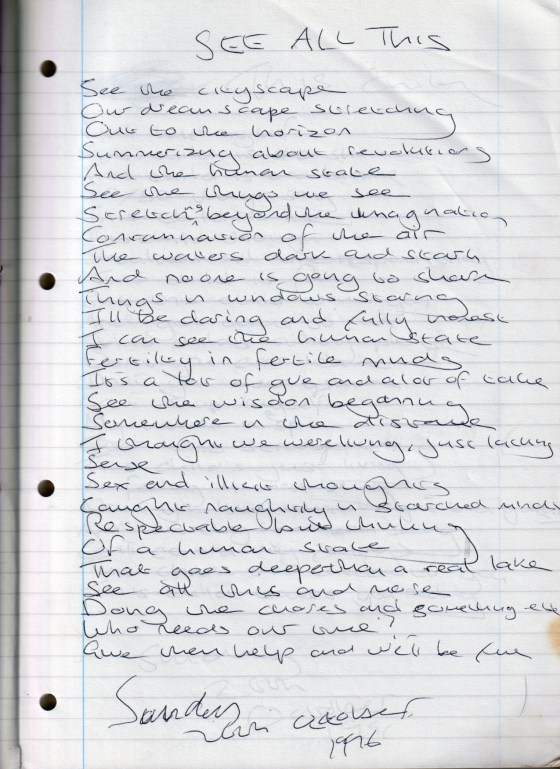 SEE ALL THIS
See the cityscape
Our dreamscape stretching
Out to the horizon
Summerizing about revolutions
And the human state
See the things we see
Stretch's beyond the imagination
Contamination of the air
The waters dark and stark
And no one is going to share
Things in windows staring
I'll be daring and fully honest
I can see the human state
Fertility in fertile minds
It's a lot of give and a lot of take
See the wisdom beginning
Somewhere in the distance
I thought we were living, just lacking
Sense
Sex and illicit thoughts
Caught naughtily in starched minds
Respectable thinking
Of a human state
That goes deeper than a real lake
See all this and more
Doing the chores and something else
Who needs our time?
Give them help and we'll be fine
Sunday
1996